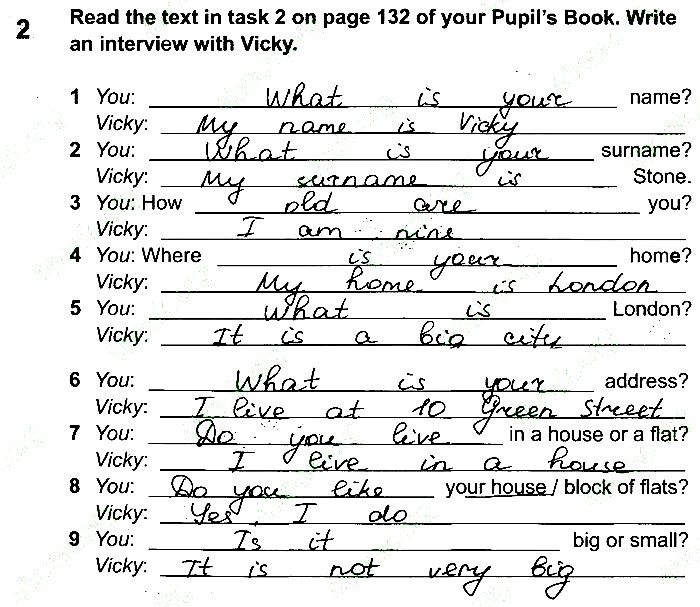 2 Read the text in task 2 on page 132 of your Pupil's Book. Write
an interview with Vicky.
1 You: What is your name?
Vicky: My name is Vicky
2 You: What is your surname?
Vicky: My surname is Stone.
3 You: How old are you?
Vicky: I am nine
4 You: Where is your home?
Vicky: My home is London
5 You: What is London?
Vicky: It is a big city
6 You: What is your address?
Vicky: I live at 10 Green Street
7 You: Do you live in a house or a flat?
Vicky: I live in a house
8 You: Do you like your house / block of flats?
Vicky: Yes, I do
9 You: Is it big or small?
Vicky: It is not very big